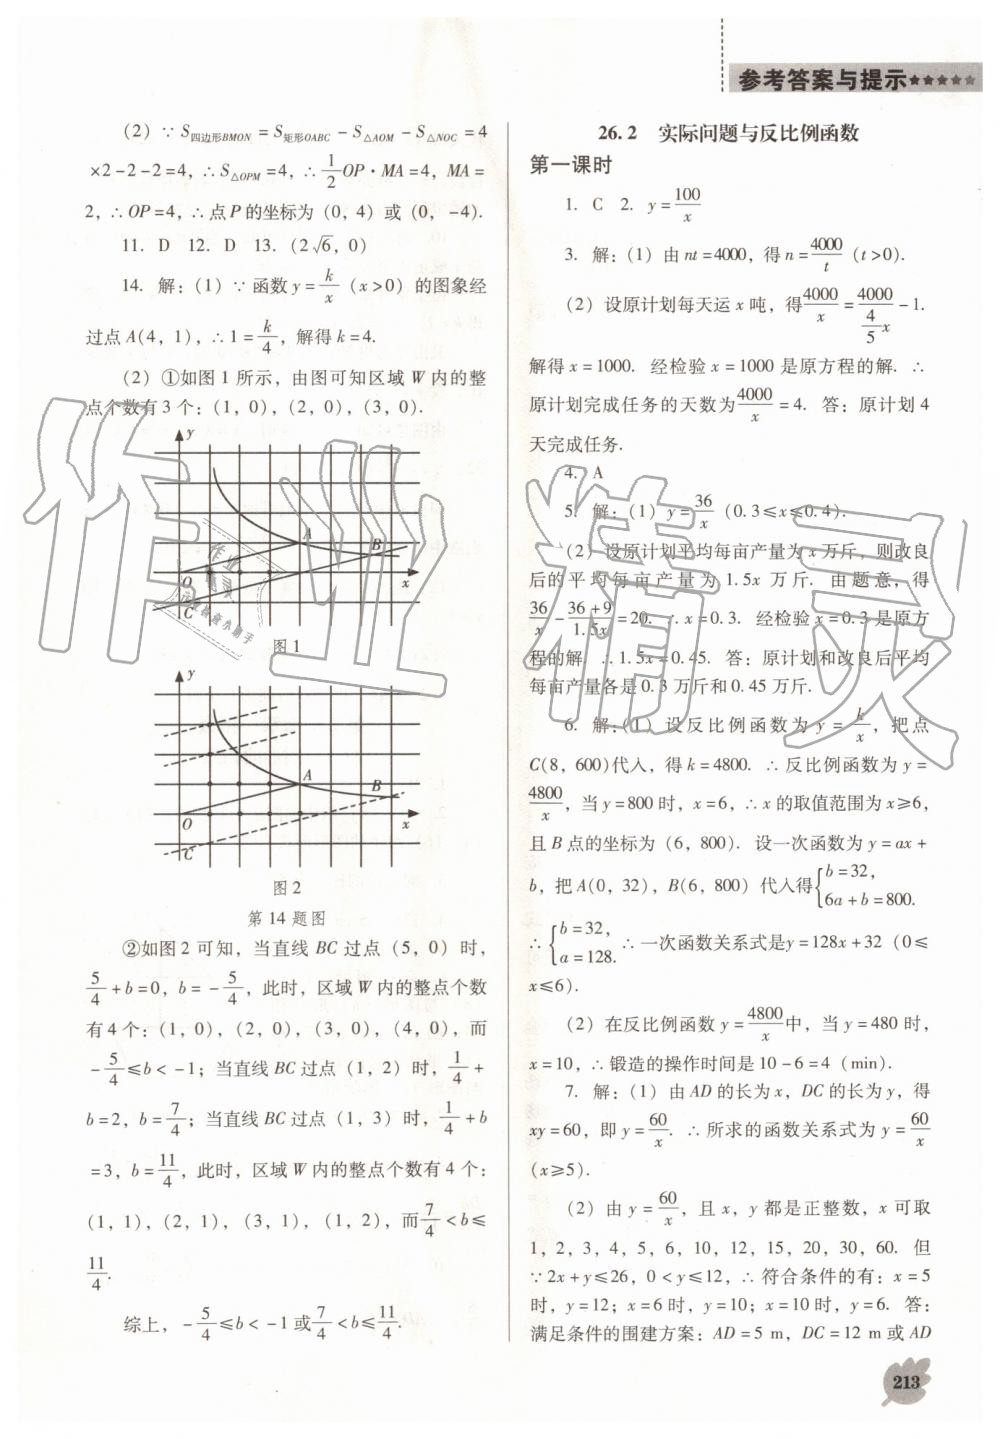 参考答案与提示★★★★★
(2) ∵ S四边形BMON = S矩形OABC − S△AOM − S△NOC = 4
×2−2−2=4, ∴ S△OPM=4, ∴ 1/2 OP·MA=4, MA=
2, ∴ OP=4, ∴ 点 P 的坐标为 (0, 4) 或 (0, −4).
11. D 12. D 13. (2√6, 0)
14. 解: (1) ∵ 函数 y=k/x (x>0) 的图象经
过点 A(4, 1), ∴ 1=k/4, 解得 k=4.
(2) ①如图 1 所示, 由图可知区域 W 内的整
点个数有 3 个: (1, 0), (2, 0), (3, 0).
y
A
B
O
x
C
图 1
y
A
B
O
x
C
图 2
第 14 题图
②如图 2 可知, 当直线 BC 过点 (5, 0) 时,
5/4+b=0, b=−5/4, 此时, 区域 W 内的整点个数
有 4 个: (1, 0), (2, 0), (3, 0), (4, 0), 而
−5/4≤b<−1; 当直线 BC 过点 (1, 2) 时, 1/4+
b=2, b=7/4; 当直线 BC 过点 (1, 3) 时, 1/4+b
=3, b=11/4, 此时, 区域 W 内的整点个数有 4 个:
(1, 1), (2, 1), (3, 1), (1, 2), 而7/4<b≤
11/4.
综上, −5/4≤b<−1 或7/4<b≤11/4.
26.2 实际问题与反比例函数
第一课时
1. C 2. y=100/x
3. 解: (1) 由 nt=4000, 得 n=4000/t (t>0).
(2) 设原计划每天运 x 吨, 得4000/x=4000/(4/5 x)−1.
解得 x=1000. 经检验 x=1000 是原方程的解. ∴
原计划完成任务的天数为4000/x=4. 答: 原计划 4
天完成任务.
4. A
5. 解: (1) y=36/x (0.3≤x≤0.4).
(2) 设原计划平均每亩产量为 x 万斤, 则改良
后的平均每亩产量为 1.5x 万斤. 由题意, 得
36/x−(36+9)/1.5x=20. ∴ x=0.3. 经检验 x=0.3 是原方
程的解. ∴ 1.5x=0.45. 答: 原计划和改良后平均
每亩产量各是 0.3 万斤和 0.45 万斤.
6. 解: (1) 设反比例函数为 y=k/x, 把点
C(8, 600)代入, 得 k=4800. ∴ 反比例函数为 y=
4800/x, 当 y=800 时, x=6, ∴ x 的取值范围为 x≥6,
且 B 点的坐标为 (6, 800). 设一次函数为 y=ax+
b, 把 A(0, 32), B(6, 800) 代入得{b=32, 6a+b=800.
∴ {b=32, a=128. ∴ 一次函数关系式是y=128x+32 (0≤
x≤6).
(2) 在反比例函数 y=4800/x中, 当 y=480 时,
x=10, ∴ 锻造的操作时间是 10−6=4 (min).
7. 解: (1) 由 AD 的长为 x, DC 的长为 y, 得
xy=60, 即 y=60/x. ∴ 所求的函数关系式为 y=60/x
(x≥5).
(2) 由 y=60/x, 且 x, y 都是正整数, x 可取
1, 2, 3, 4, 5, 6, 10, 12, 15, 20, 30, 60. 但
∵ 2x+y≤26, 0<y≤12, ∴ 符合条件的有: x=5
时, y=12; x=6 时, y=10; x=10 时, y=6. 答:
满足条件的围建方案: AD=5 m, DC=12 m 或 AD
213
作业精灵